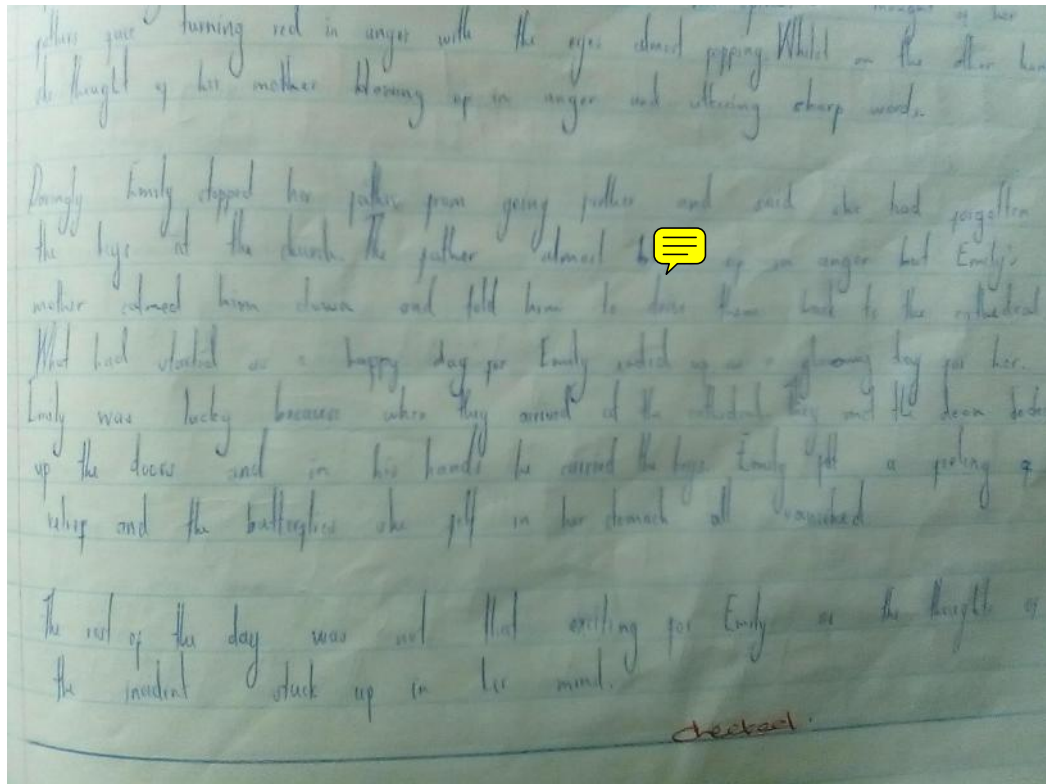 thought of her
fathers face turning red in anger with the eyes almost popping. Whilst on the other han
she thought of her mother blowing up in anger and uttering sharp words.
Daringly Emily stopped her father from going further and said she had forgotten
the keys at the church. The father almost up in anger but Emily's
mother calmed him down and told him to drive them back to the cathedral
What had started as a happy day for Emily ended up as a gloomy day for her.
Emily was lucky because when they arrived at the cathedral they met the dean
up the doors and in his hands he carried the keys. Emily felt a feeling
relief and the butterflies she felt in her stomach all vanished
The rest of the day was not that exciting for Emily as the thoughts of
the incident stuck up in her mind.
checked.